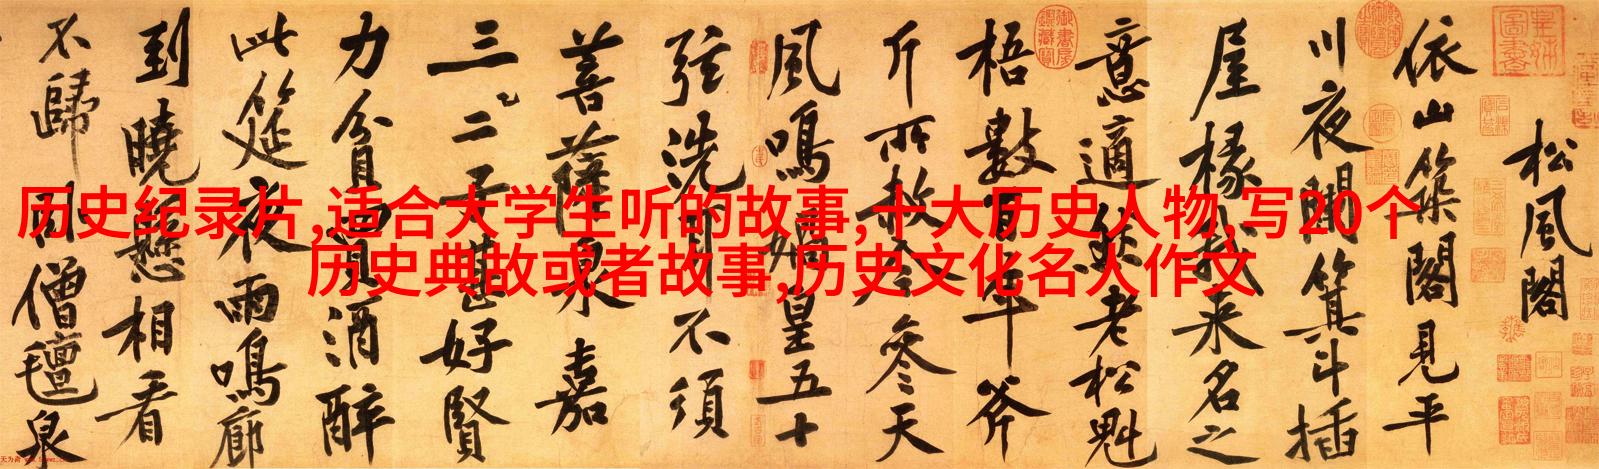 历史纪录片,适合大学生听的故事,十大历史人物,写20个
历史典故或者故事,历史文化名人作文
松風閣
依山築閣見平
川夜闌箕斗插
屋椽我来名之
意適然老松魁
梧數百年斧
斤所赦今參天
風鳴媧皇五十
弦洗耳不須
菩薩泉嘉
三二子甚好賢
力貧買酒醉
此筵夜雨鳴廊
到曉懸相看
不歸卧僧氈泉